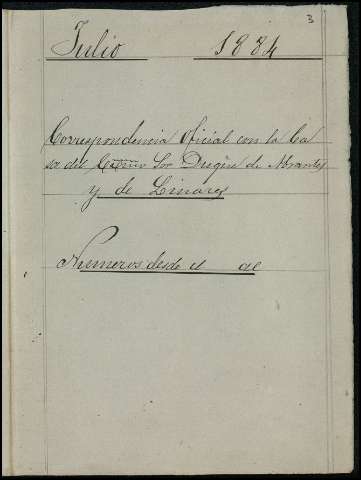 3
Julio 1884
Correspondencia Oficial con la Ca
sa del Excmo Sor Duque de Abrantes
y de Linares
Numeros desde el al